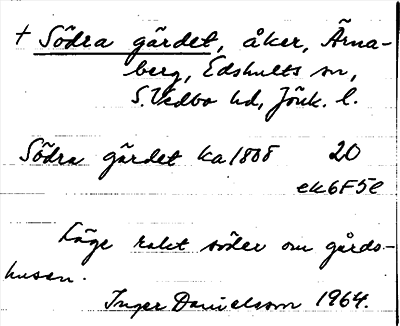 + Södra gärdet, åker, Ärna-
berg, Edshults sn,
S. Vedbo hd, Jönk. l.
Södra gärdet ka 1808 20
ek6F5e
Läge rakt söder om gårds-
husen.
Inger Danielsson 1964.